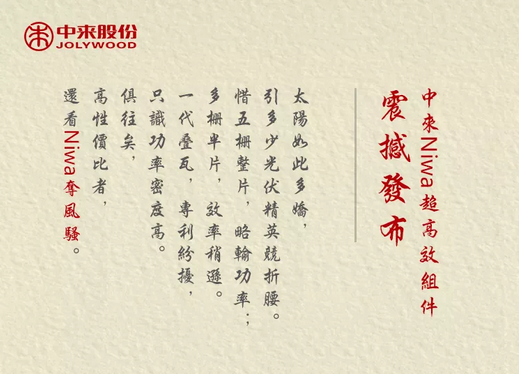 中来股份
JOLYWOOD
中來Niwa超高效組件
震撼發布
太陽如此多嬌，
引多少光伏精英競折腰。
惜五柵整片，略輸功率；
多柵単片，效率稍遜。
一代叠瓦，專利紛擾，
只識功率密度高。
俱往矣，
高性價比者，
還看Niwa奪風騷。